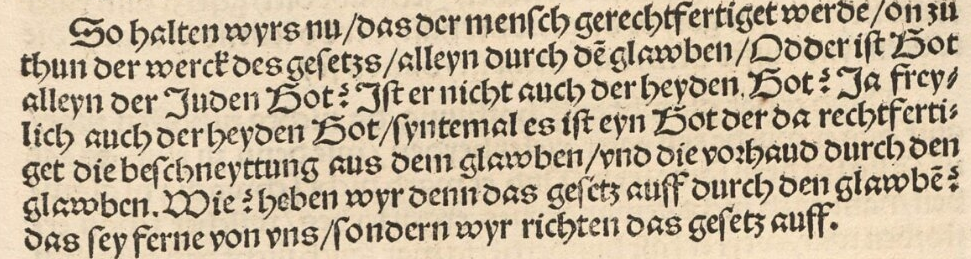 So halten wyrs nu/das der mensch gerechtfertiget werde/on zu
thun der werck des gesetzs/alleyn durch dẽ glawben/Odder ist Got
alleyn der Juden Got? Ist er nicht auch der heyden Got? Ja frey/
lich auch der heyden Got/syntemal es ist eyn Got der da rechtferti-
get die beschneyttung aus dem glawben/vnd die vorhaud durch den
glawben. Wie? heben wyr denn das gesetz auff durch den glawbẽ?
das sey ferne von vns/sondern wyr richten das gesetz auff.